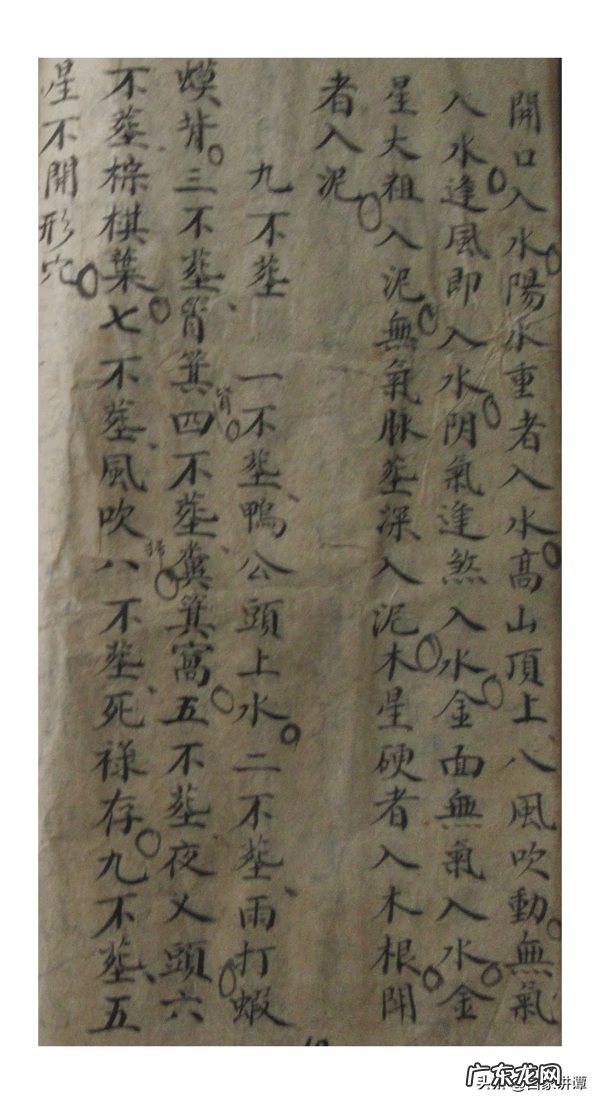 開口入水陽水重者入水高山頂上八風吹動無氣
入水逢風即入水陰氣逢煞入水金面無氣入水金
星大祖入泥無氣脉塟深入泥木星硬者入木根開
者入泥
九不塟 一不塟鴨公頭上水二不塟雨打蝦
蟆背三不塟筲箕四不塟糞箕窩五不塟夜乂頭六
筲
不塟棕棋葉七不塟風吹八不塟死祿存九不塟五
星不開形穴
广东龙网